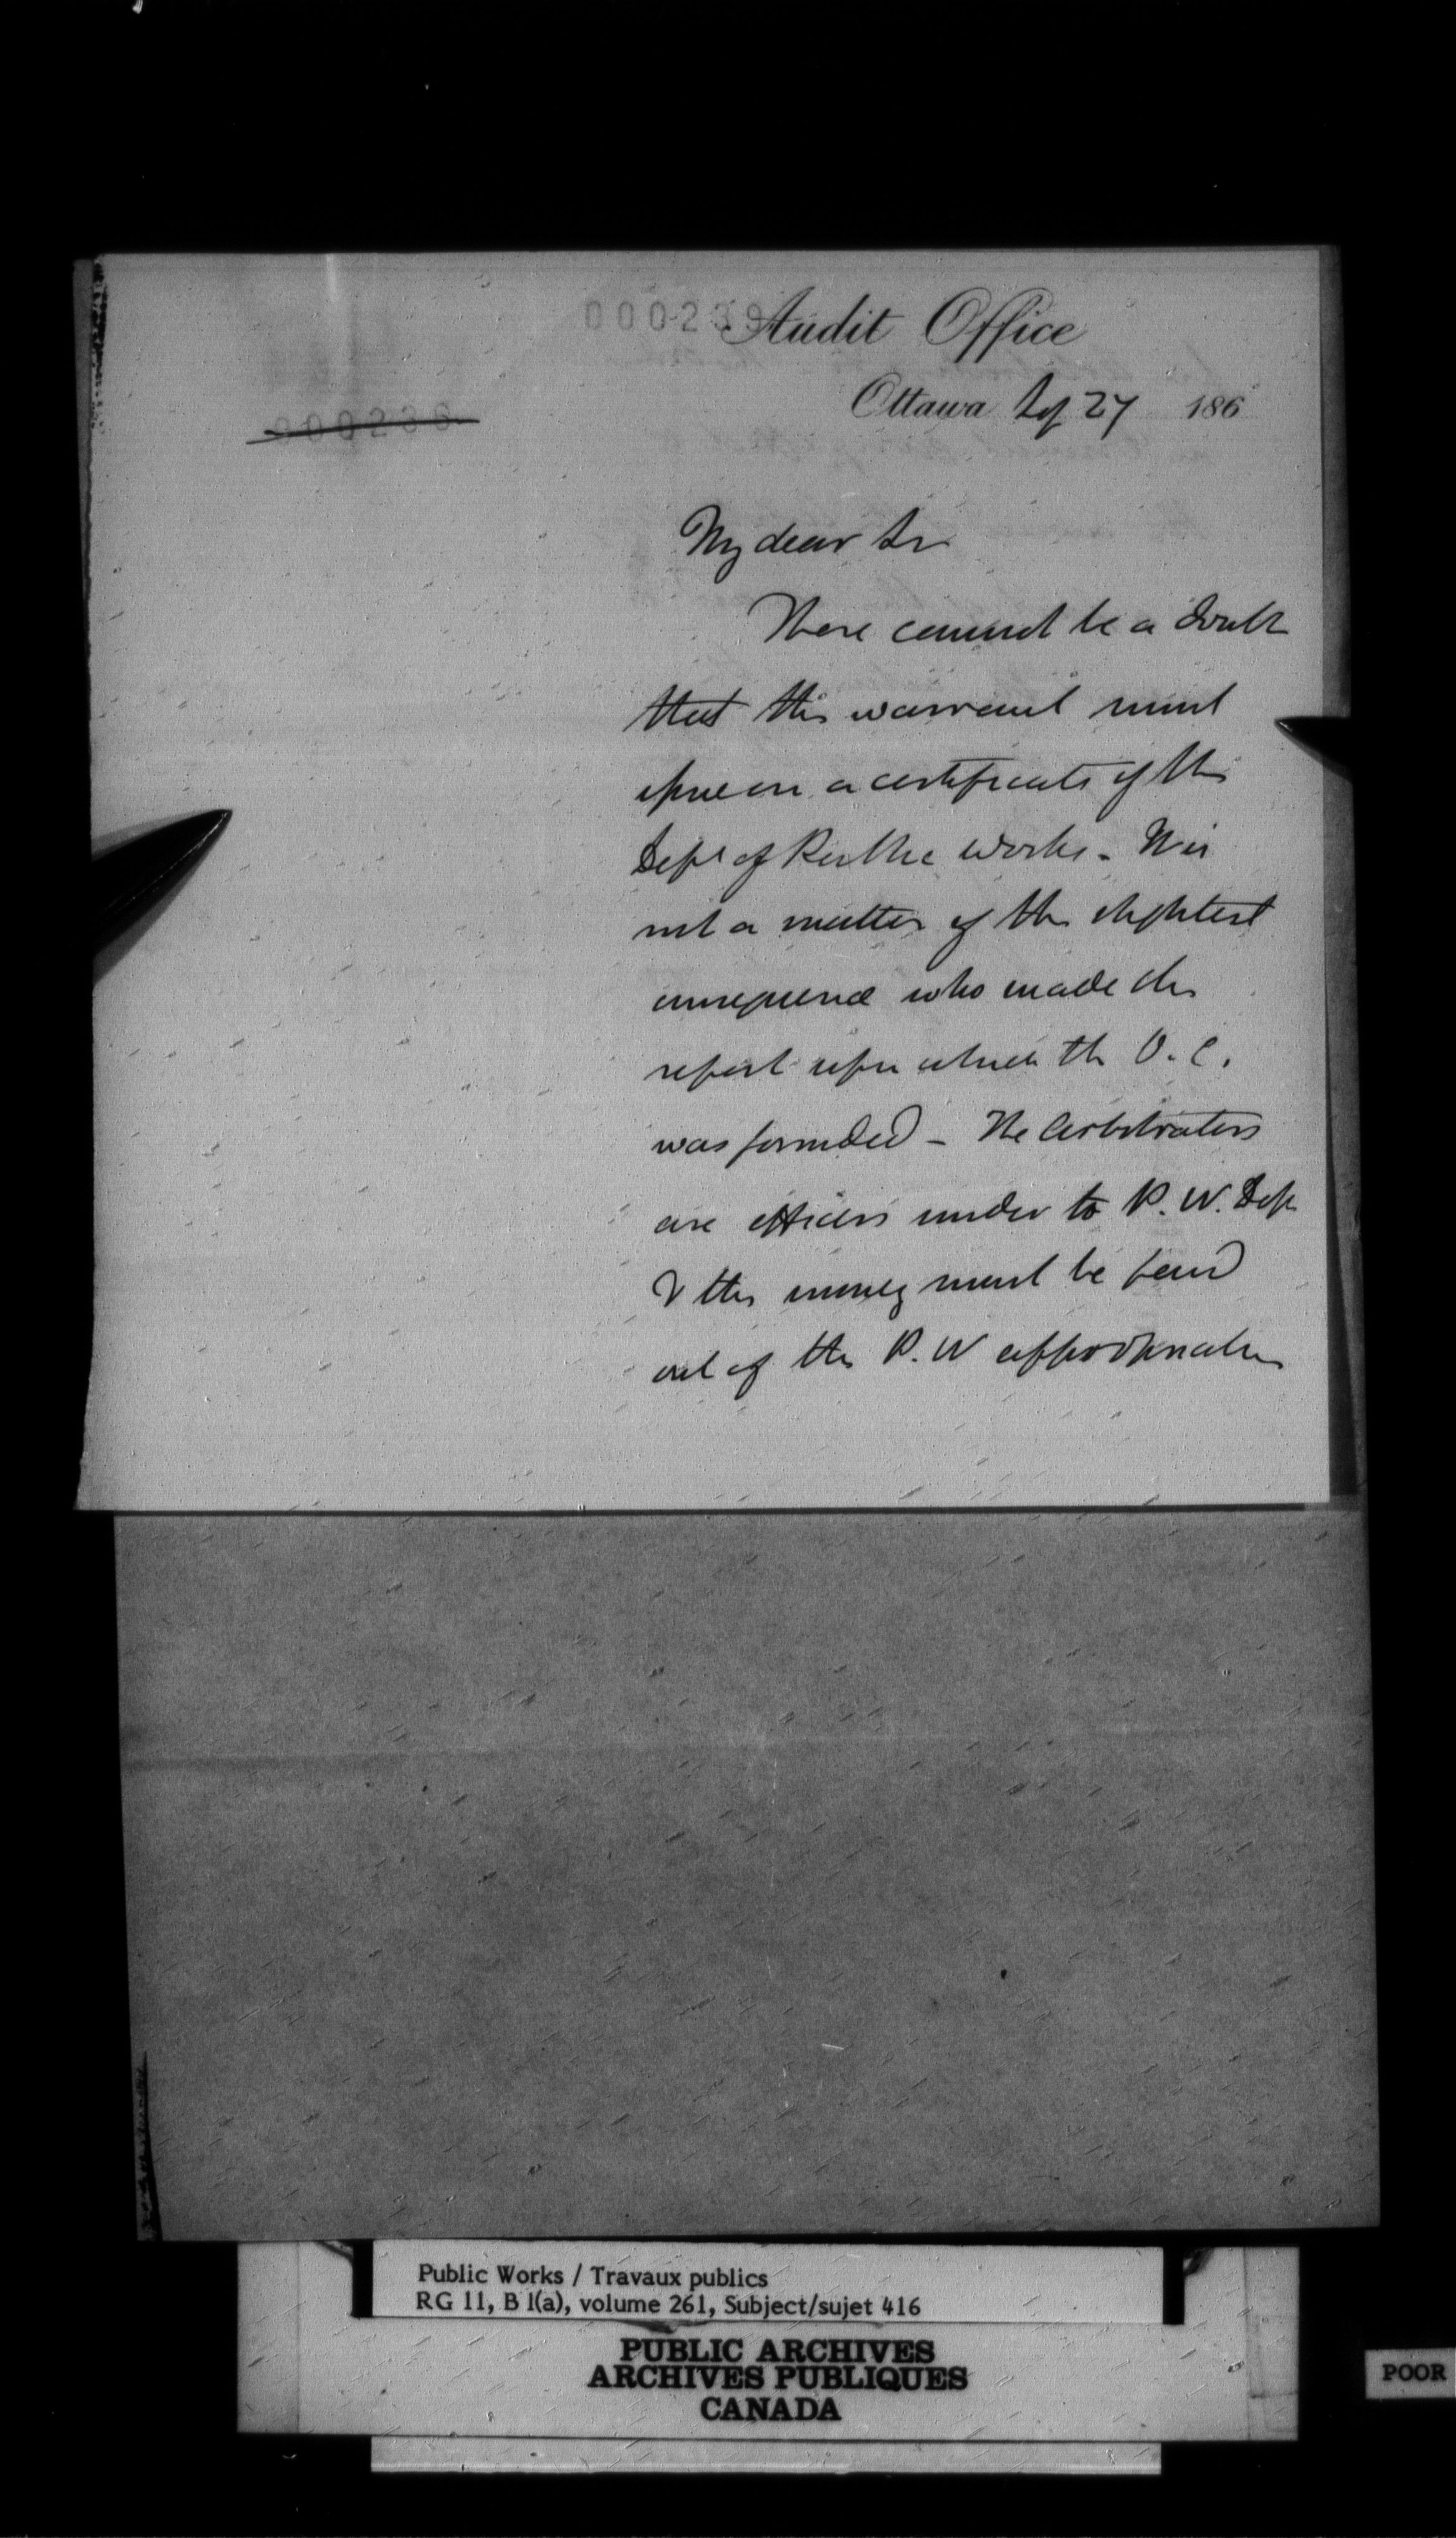 000239
Audit Office
000236
Ottawa Sep 27 186
My dear Sir
There cannot be a doubt
that this warrant must
issue on a certificate of the
Dept of Public Works. It is
not a matter of the slightest
consequence who made the
report upon which the O.C.
was founded - The Arbitrators
are officers under the P.W. Dep
& the money must be paid
out of the P.W appropriation
Public Works / Travaux publics
RG 11, B 1(a), volume 261, Subject/sujet 416
PUBLIC ARCHIVES
ARCHIVES PUBLIQUES
CANADA
POOR